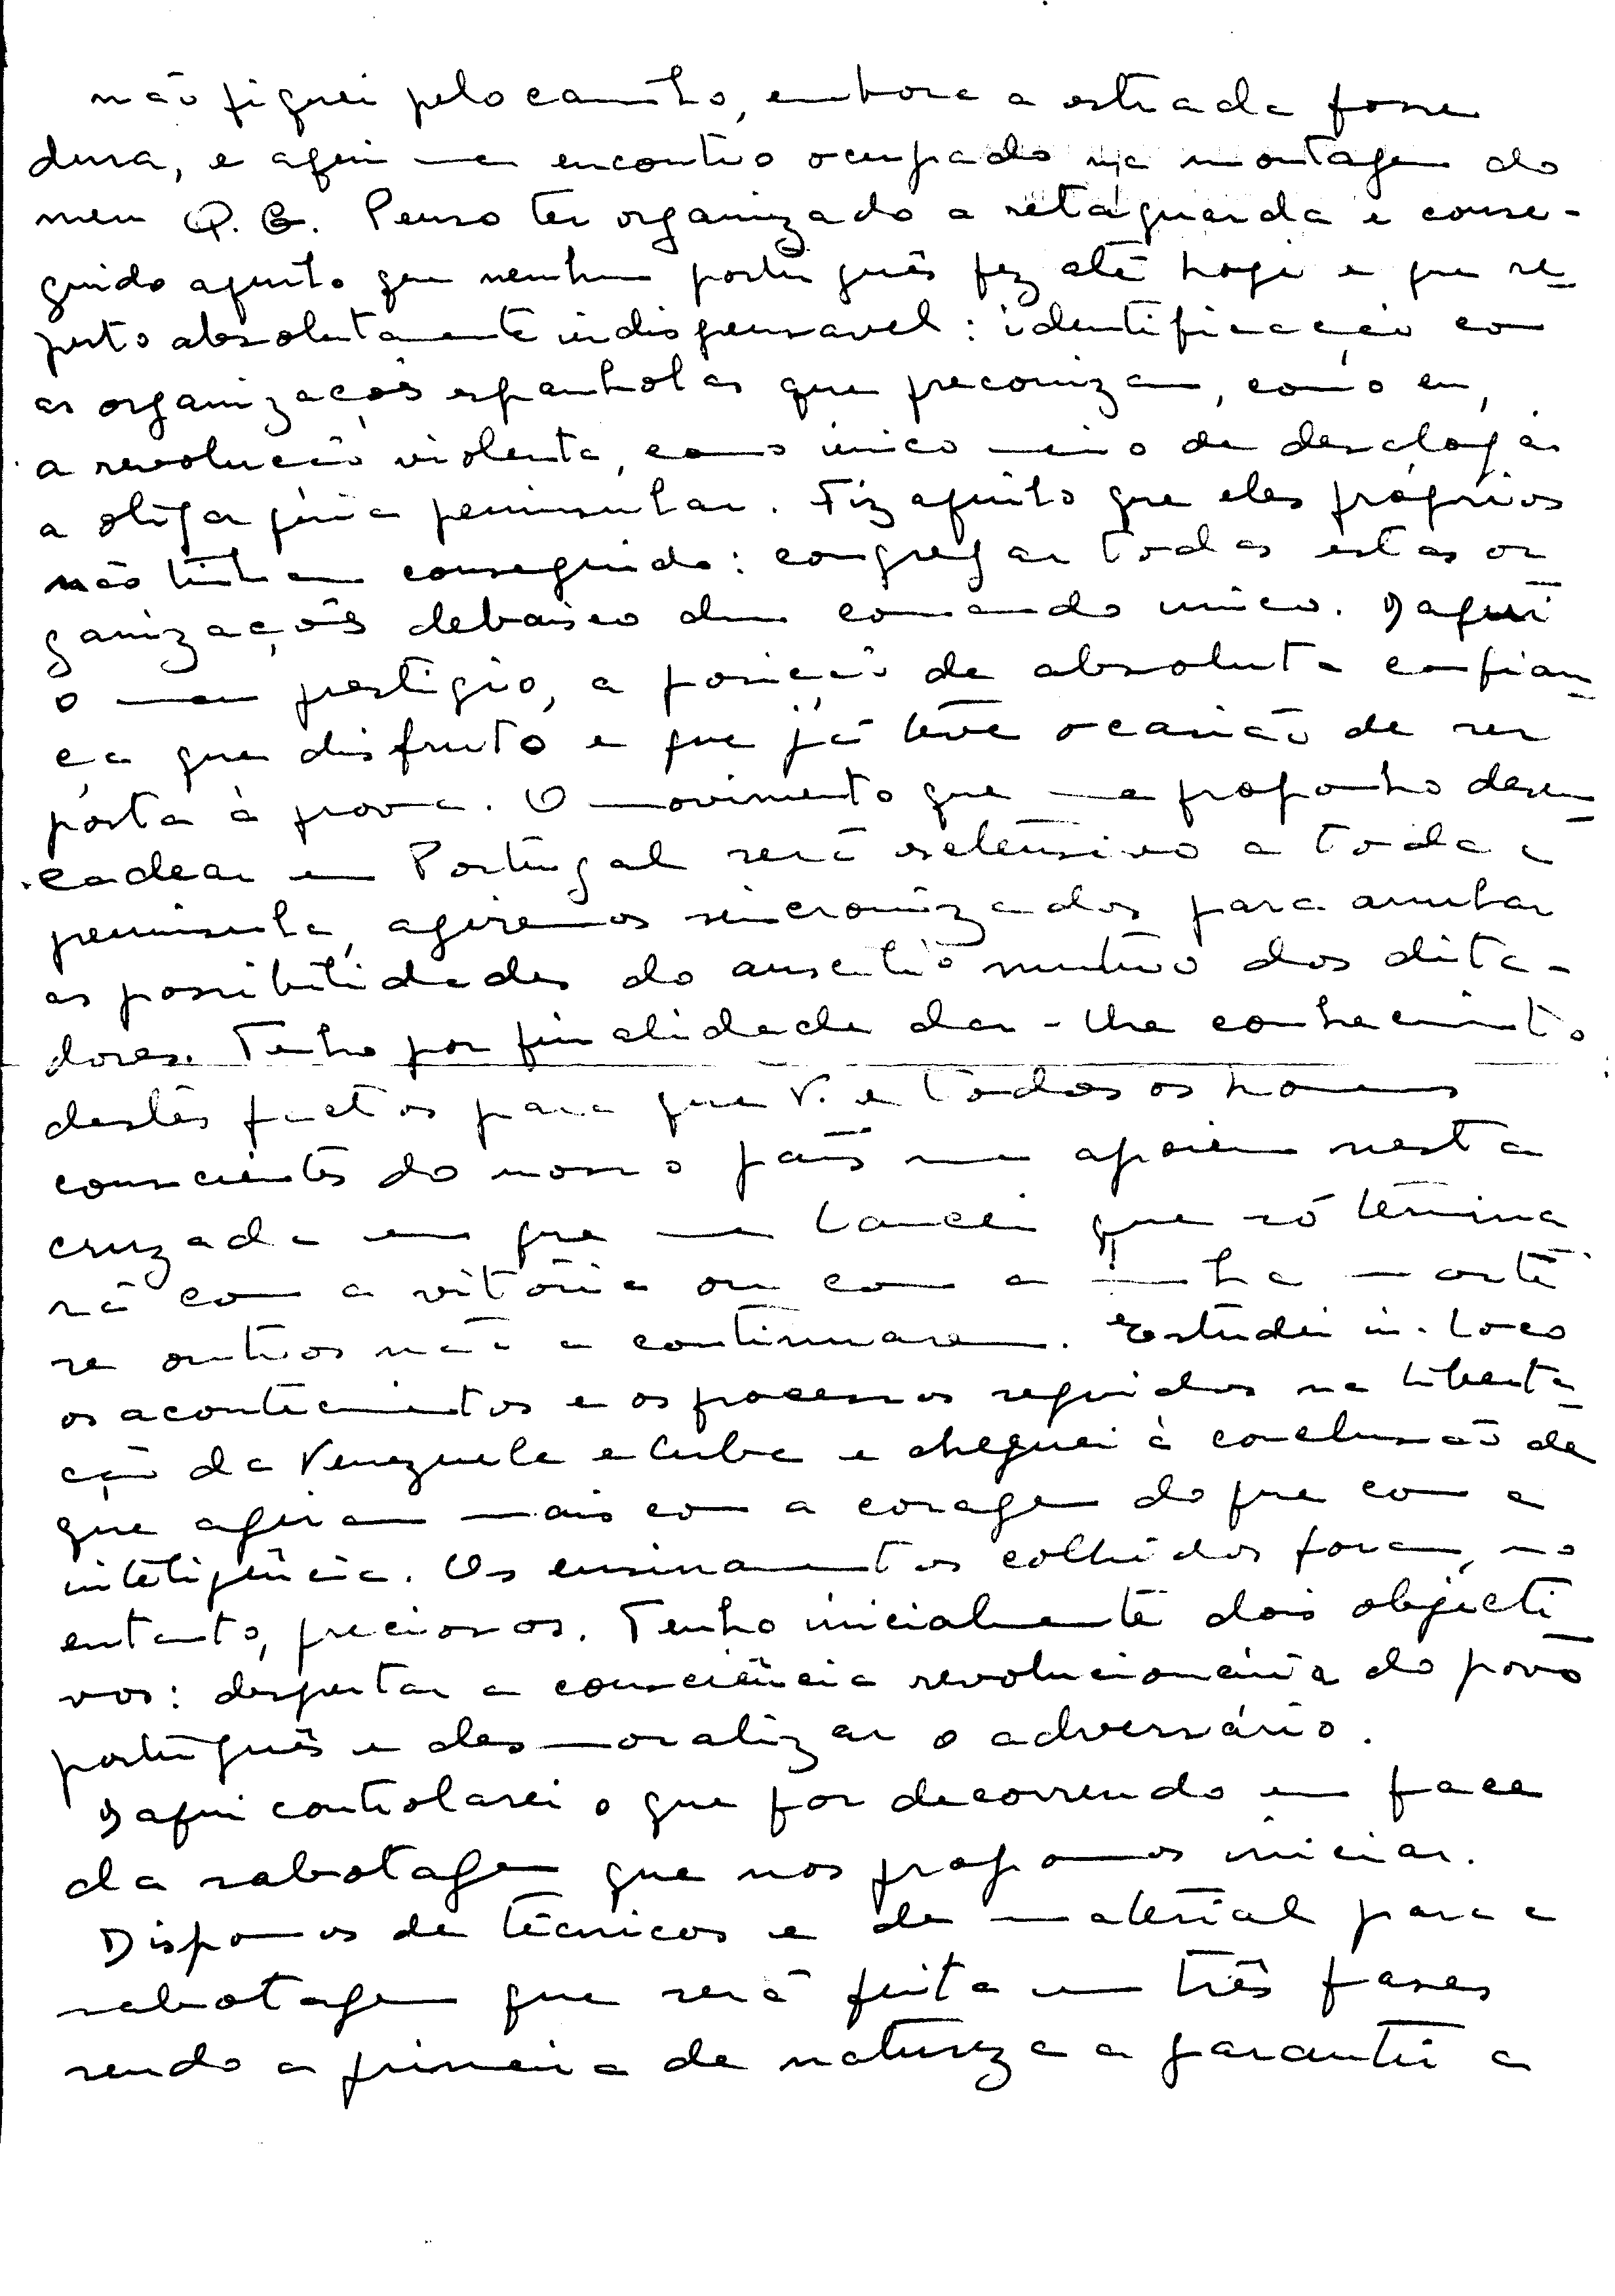 não fiquei pelo caminho, embora a estrada fosse
dura, e aqui me encontro ocupado na montagem do
meu Q. G. Penso ter organizado a retaguarda e conse-
guido aquilo que nenhum português fez até hoje e que re-
puto absolutamente indispensavel: identificação com
as organizações espanholas que preconizam, como eu,
a revolução violenta, como único meio de desalojar
a oligarquia peninsular. Fiz aquilo que eles próprios
não tinham conseguido: congregar todas estas or
ganizações debaixo dum comando unico. Daqui
o meu prestigio, a posição de absoluta confian-
ça que disfruto e que já teve ocasião de ser
posta à prova. O movimento que me proponho desen-
cadear em Portugal será extensivo a toda a
peninsula, agiremos sincronizados para anular
as possibilidades do auxilio mutuo dos dita-
dores. Tenho por finalidade dar-lhe conhecimento
destes factos para que V. e todos os homens
conscientes do nosso país me apoiem nesta
cruzada em que me lancei que só termina
rá com a vitória ou com a minha morte
se outros não a continuarem. Estudei in-loco
os acontecimentos e os processos seguidos na liberta-
ção da Venezuela e Cuba e cheguei à conclusão de
que agiram mais com a coragem do que com a
inteligência. Os ensinamentos colhidos foram, no
entanto, preciosos. Tenho inicialmente dois objecti
vos: despertar a consciência revolucionária do povo
português e desmoralizar o adversário.
Daqui controlarei o que for decorrendo em face
da sabotagem que nos propomos iniciar.
Dispomos de técnicos e de material para a
sabotagem que será feita em três fases
sendo a primeira de natureza a garantir a